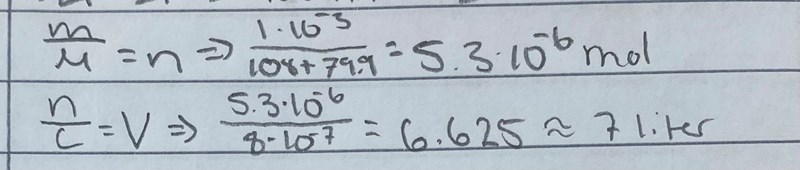 m/M = n => 1·10^-3/108+79.9 = 5.3·10^-6 mol
n/c = V => 5.3·10^-6/8·10^-7 = 6.625 ≈ 7 liter